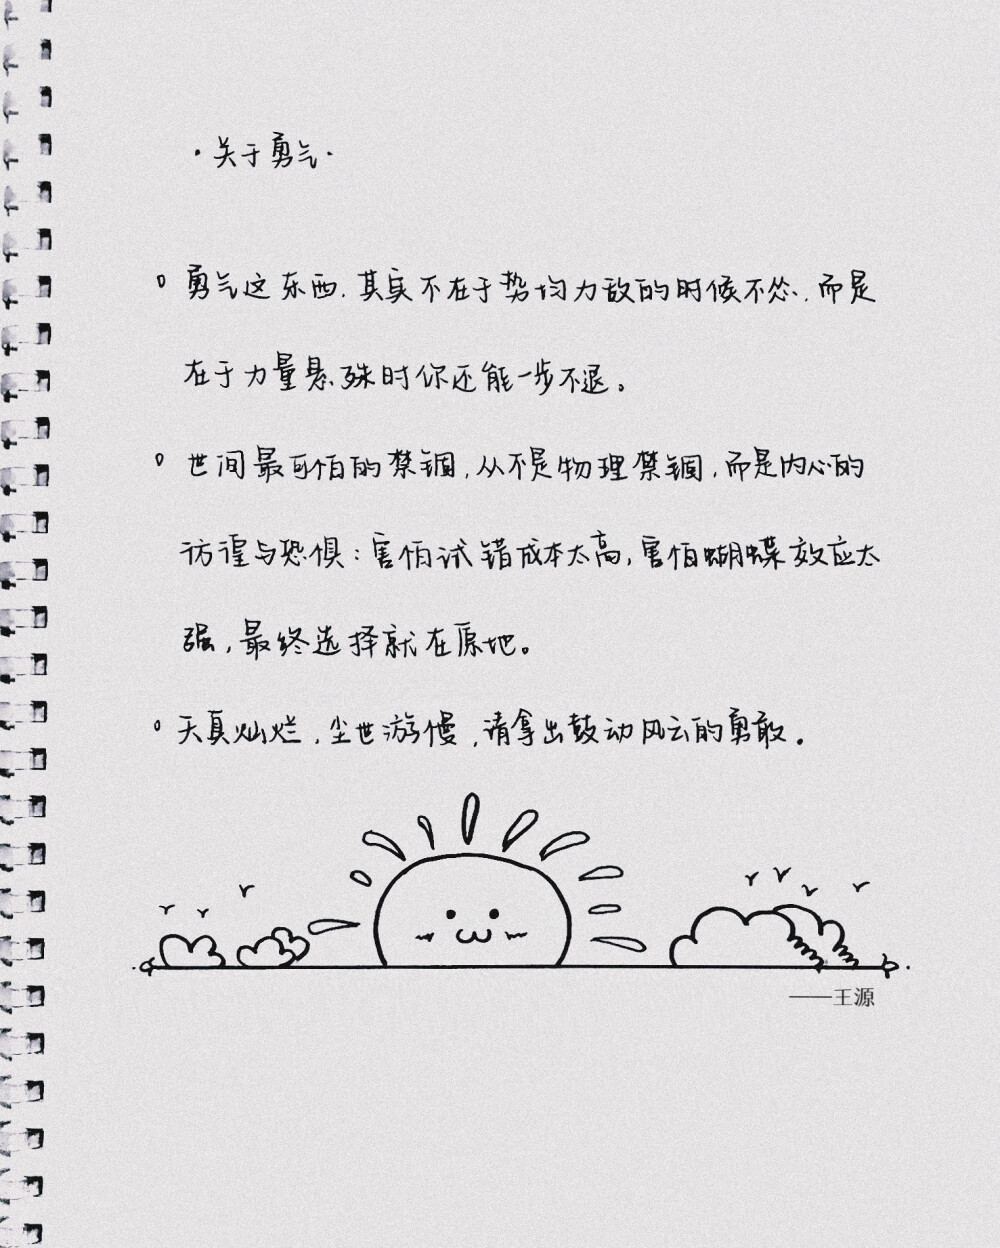 ·关于勇气·
勇气这东西,其实不在于势均力敌的时候不怂,而是
在于力量悬殊时你还能一步不退。
世间最可怕的禁锢,从不是物理禁锢,而是内心的
彷徨与恐惧:害怕试错成本太高,害怕蝴蝶效应太
强,最终选择就在原地。
天真灿烂,尘世游慢,请拿出鼓动风云的勇敢.
——王源